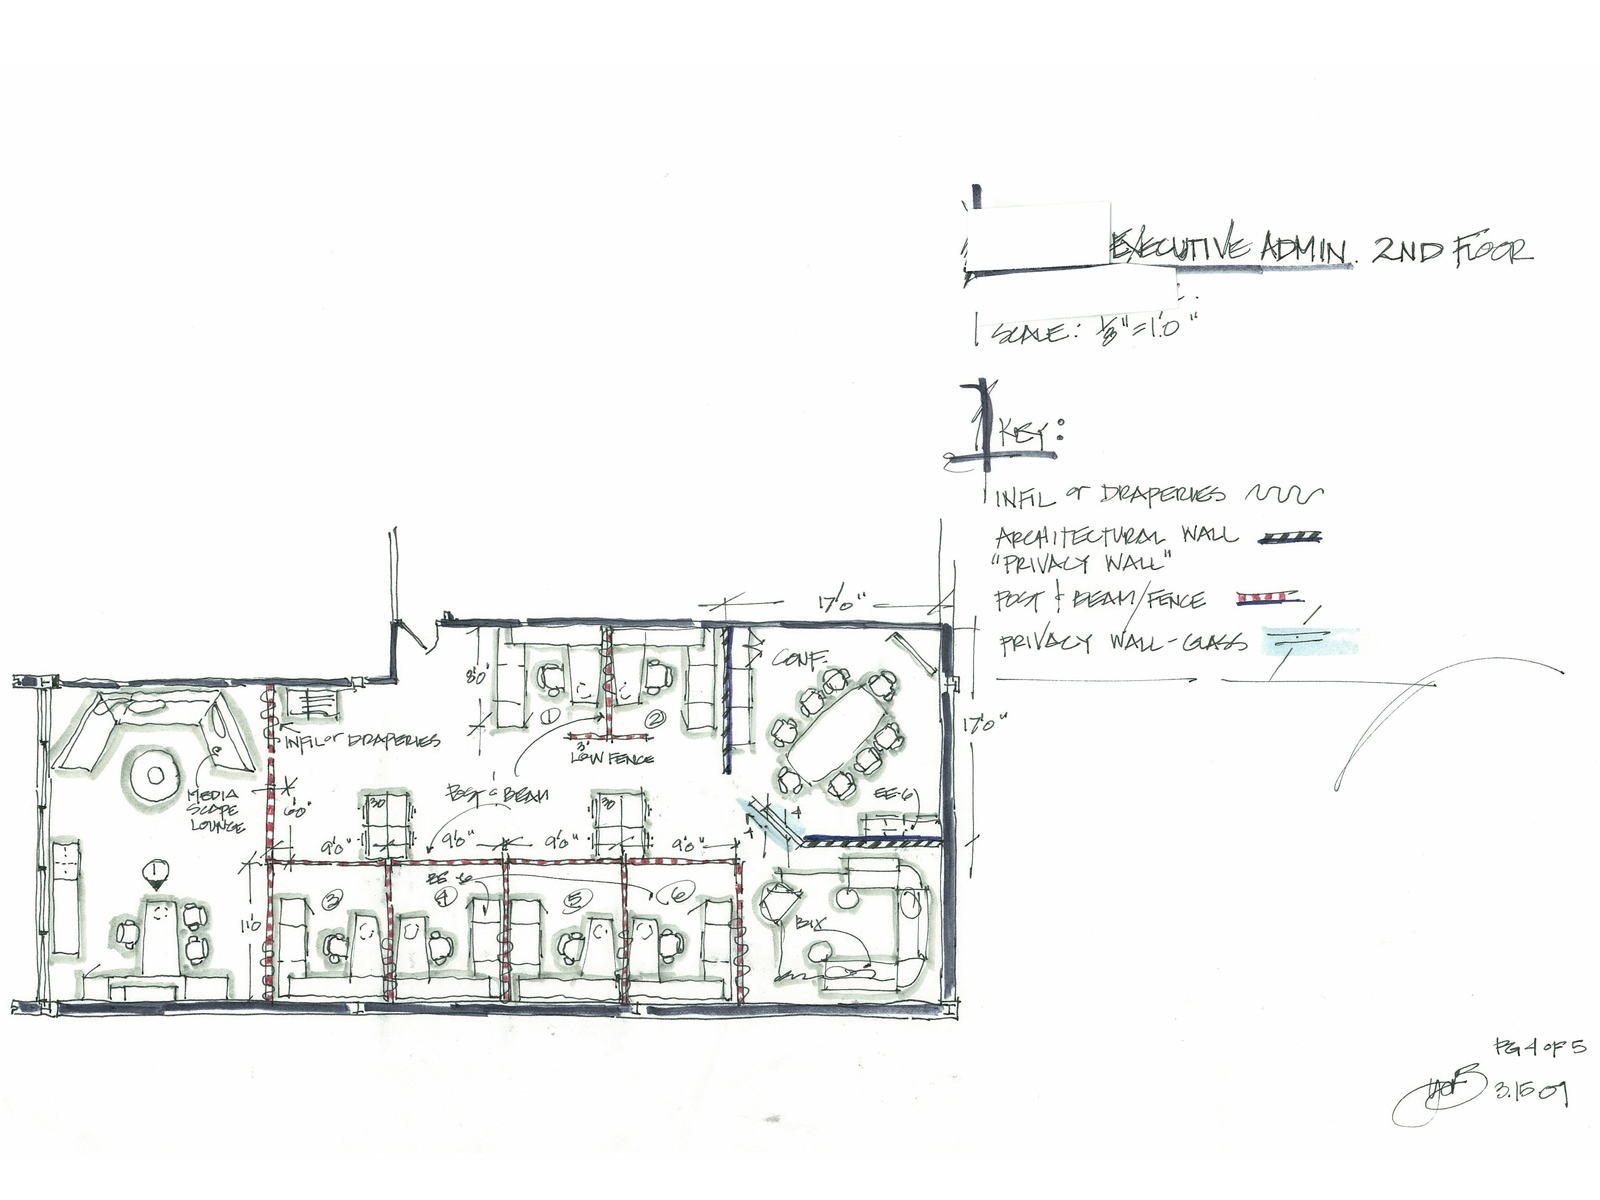 EXECUTIVE ADMIN. 2ND FLOOR
SCALE: 1/8" = 1'0"
KEY:
INFIL or DRAPERIES
ARCHITECTURAL WALL
"PRIVACY WALL"
POST & BEAM/FENCE
PRIVACY WALL-GLASS
17'0"
CONF.
8'0"
1
2
17'0"
INFIL or DRAPERIES
3'
LOW FENCE
MEDIA
SCAPE
LOUNGE
POST & BEAM
6'0"
30
30
EE-6
9'0"
9'0"
9'0"
9'0"
1
EE-6
3
4
5
6
11'0"
BIX
PG 4 OF 5
3.15.09